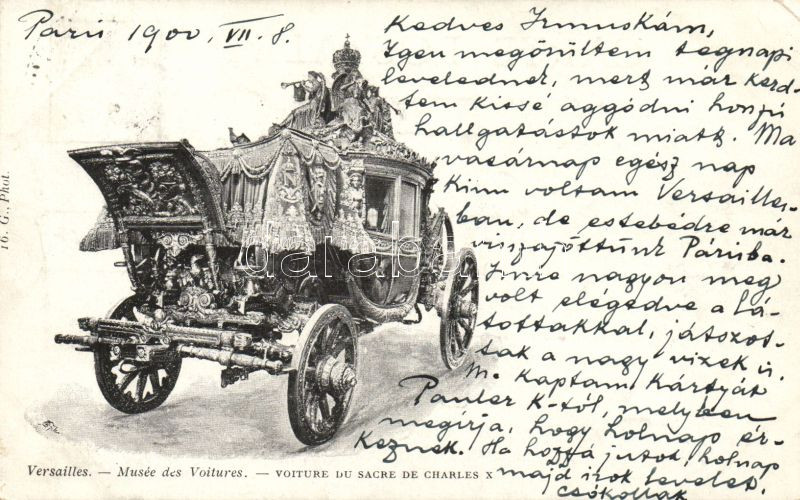 Páris 1900. VII. 8.
Kedves Irmuskám,
Igen megörültem tegnapi
levelednek, mert már kezd-
tem kissé aggódni hosszú
hallgatástok miatt. Ma
vasárnap egész nap
kinn voltam Versailles-
ban, de estebédre már
visszajöttünk Párisba.
Imre nagyon meg
volt elégedve a lá-
tottakkal, játszot-
tak a nagy vizek is.
M. kaptam kártyát
Pauler K-tól, melyben
megírja, hogy holnap ér-
keznek. Ha hozzá jutok, holnap
majd irok levelet.
csókollak
16. G., Phot.
darabanth
Versailles. — Musée des Voitures. — VOITURE DU SACRE DE CHARLES X